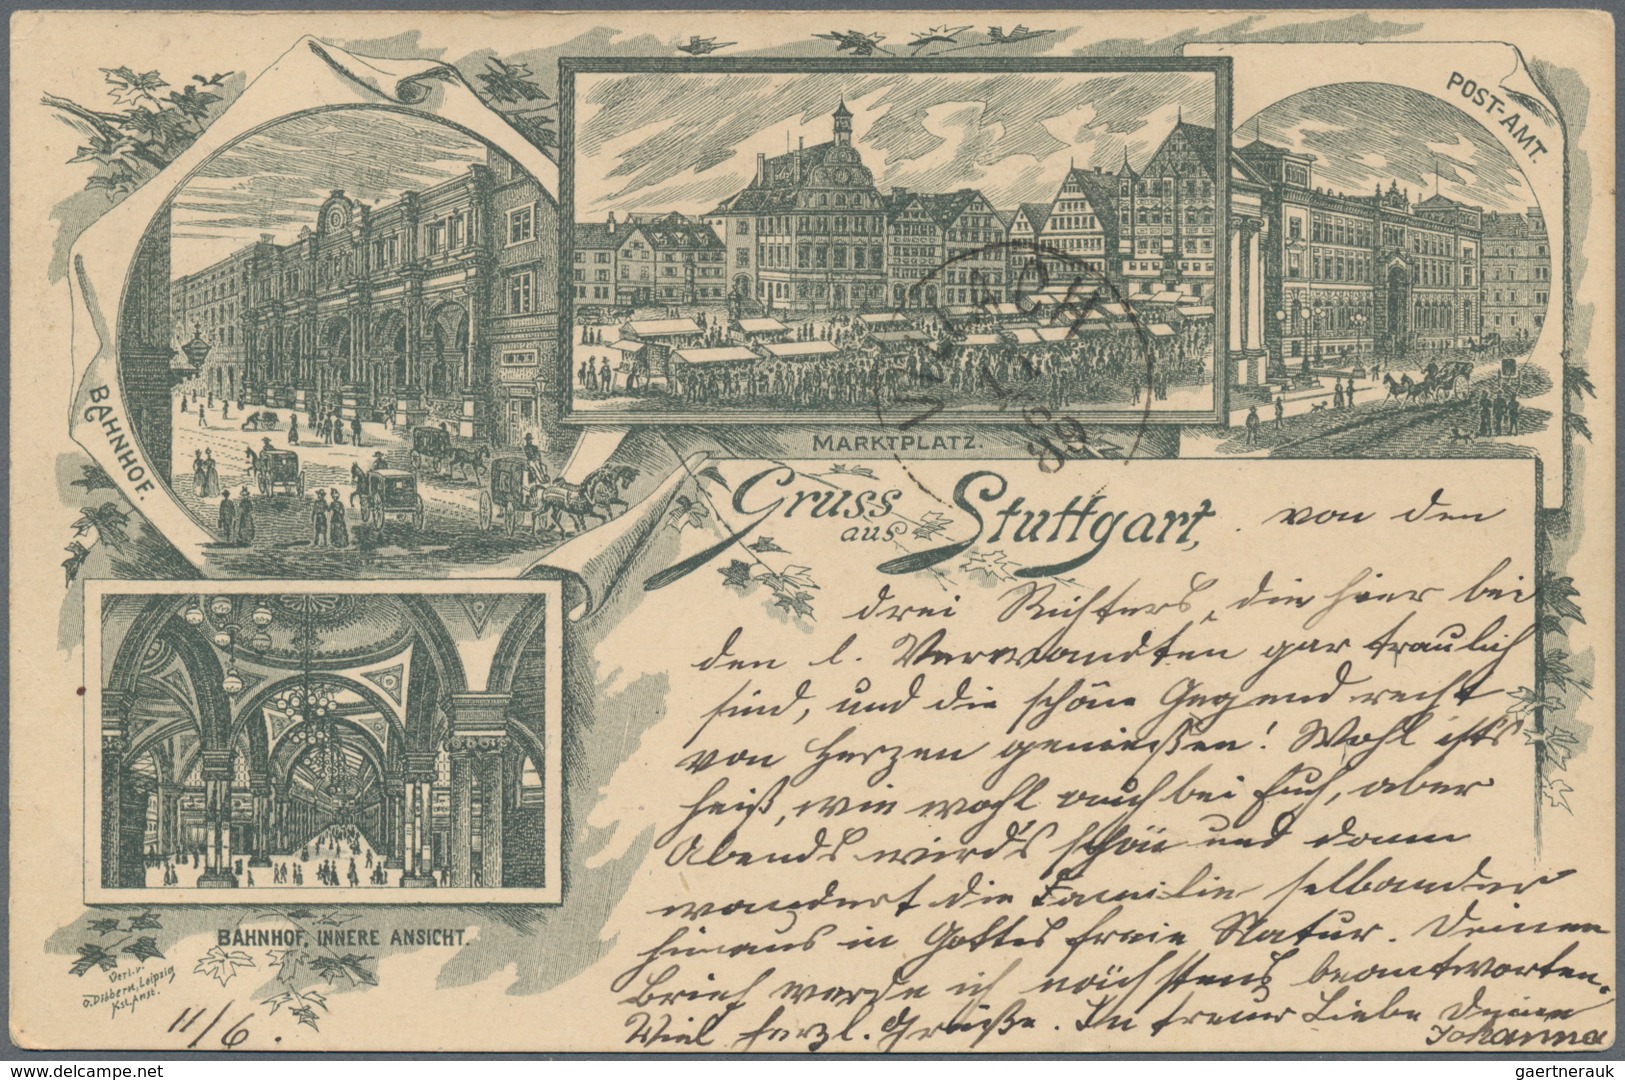 POST-AMT.
BAHNHOF.
MARKTPLATZ.
Gruss
aus Stuttgart, von den
drei Richters, die hier bei
den l. Verwandten gar traulich
sind, und die schöne Gegend recht
von Herzen genießen! Wohl ist's
heiß, wie wohl auch bei Euch, aber
Abends wird's schön und dann
wandert die Familie selbander
hinaus in Gottes freie Natur. Deinen
Brief werde ich nächstens beantworten.
Viel herzl. Grüße. In treuer Liebe Deine
Johanna
BAHNHOF, INNERE ANSICHT.
Verl. v.
O. Dobbern, Leipzig
Kst. Anst.
11/6.
89
delcampe.net
gaertnerauk